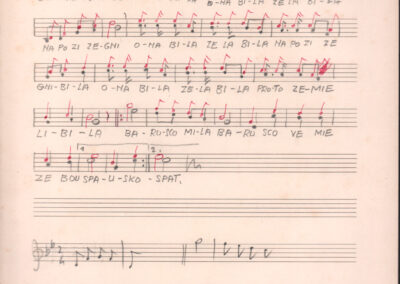 O-NA BI-LA ZE LA BI-LA
NA PO ZI ZE-GNI O-NA BI-LA ZE LA BI-LA NA PO ZI ZE
GNI-BI-LA O-NA BI-LA ZE-LA BI-LA PRO TO ZE-MIE
LI-BI-LA BA-RUSCO MI-LA BA-RU SCO VE MIE
1. 2.
ZE BOU SPA-U-SKO-SPAT.
2
4